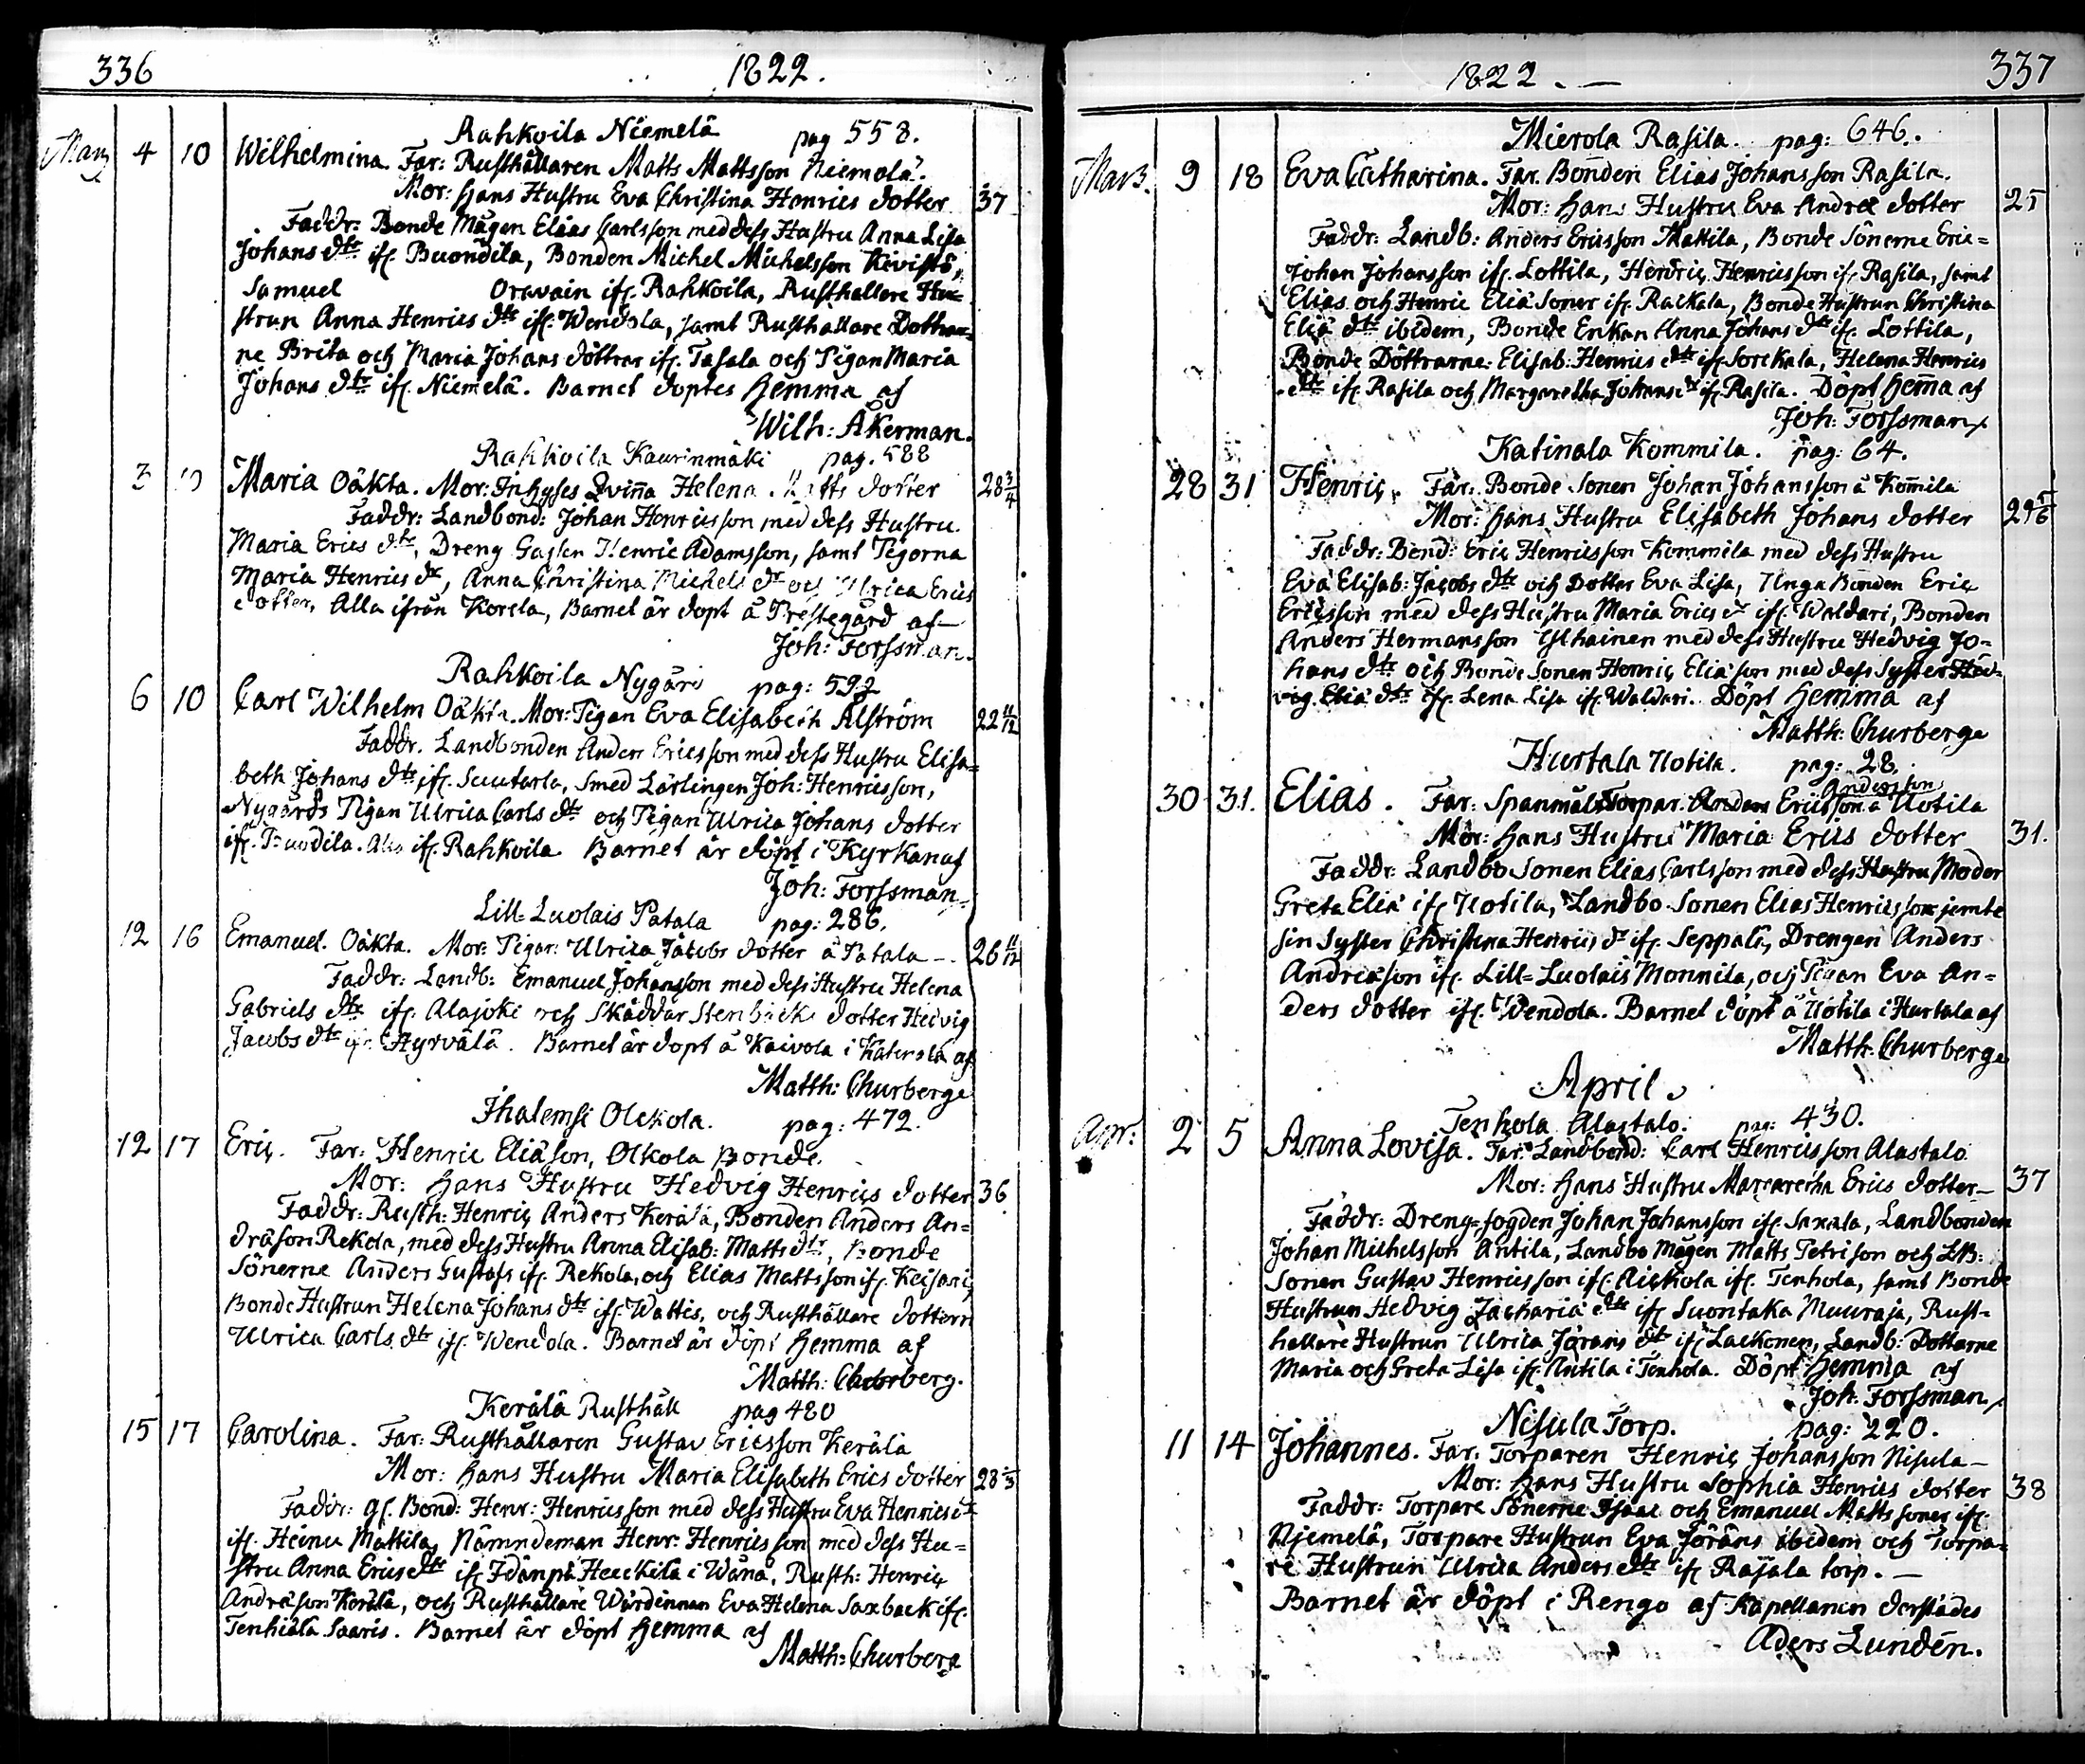 336 1822.
Rahkoila Niemelä pag 558.
Mars 4 10 Wilhelmina. Far: Rusthållaren Matts Mattsson Niemelä.
Mor: hans Hustru Eva Christina Henrics dotter 37
Faddr: Bonde Mågen Elias Carlsson med dess Hustru Anna Lisa
Johans dtr ifr. Buondila, Bonden Michel Michelsson Kivistö,
Samuel Oravain ifr. Rahkoila, Rusthallare Hu=
strun Anna Henrics dtr ifr. Wendola, samt Rusthallare Dottrar=
ne Brita och Maria Johans döttrar ifr. Tasala och Pigan Maria
Johans dtr ifr. Niemelä. Barnet döptes hemma af
Wilh: Åkerman.
Rahkoila Kaurinmäki pag. 588
3 10 Maria Oäkta. Mor: Inhyses Qvinna Helena Matts dotter 28 3/4
Faddr: Landbond: Johan Henricsson med dess Hustru
Maria Erics dtr, Dreng Gossen Henric Adamsson, samt Pigorna
Maria Henrics dr, Anna Christina Michels dr och Ulrica Erics
dotter, Alla ifrån Korela, Barnet är döpt å Prestegård af
Joh: Forssman.
Rahkoila Nygård pag: 592
6 10 Carl Wilhelm Oäkta. Mor: Pigan Eva Elisabeth Alström 22 11/12
Faddr. Landbonden Anders Ericsson med dess Hustru Elisa=
beth Johans dtr ifr. Suutarla, Smed Lärlingen Joh: Henricsson,
Nygårds Pigan Ulrica Carls dtr och Pigan Ulrica Johans dotter
ifr. Buodila. Alla ifr. Rahkoila Barnet är döpt i Kyrkan af
Joh: Forssman
Lill-Luolais Patala pag: 286.
12 16 Emanuel. Oäkta. Mor: Pigan Ulrica Jacobs dotter å Patala - 26 11/12
Faddr: Landb: Emanuel Johansson med dess Hustru Helena
Gabriels dtr ifr. Alajoki och Skräddar Stenbäck dotter Hedvig
Jacobs dtr ifr. Hyrvälä. Barnet är döpt å Kaivola i Katinala af
Matth: Churberg
Ihalemsi Olckola. pag: 472.
12 17 Eric. Far: Henric Eliäson, Olkola Bonde.
Mor: hans Hustru Hedvig Henrics dotter 36
Faddr: Rusth: Henric Anders Kerälä, Bonden Anders An=
dräson Rekola, med dess Hustru Anna Elisab: Matts dtr, Bonde
Sönerne Anders Gustafs ifr. Rekola, och Elias Mattsson ifr. Keisari,
Bonde Hustrun Helena Johans dtr ifr. Wattis, och Rusthållare dottern
Ulrica Carls dtr ifr. Wendola. Barnet är döpt hemma af
Matth: Churberg.
Kerälä Rusthåll pag 480
15 17 Carolina. Far: Rusthållaren Gustav Ericsson Kerälä
Mor: hans Hustru Maria Elisabeth Erics dotter 28 2/3
Faddr: gl. Bond: Henr: Henricsson med dess Hustru Eva Henrics dr
ifr. Heinu Mattila, Nämndeman Henr: Henricsson med dess Hu=
stru Anna Erics dtr ifr. Idänpä Heuckilä i Wånå, Rusth: Henric
Andräson Kerälä, och Rusthållare Wärdinnan Eva Helena Saxback ifr.
Tenhiälä Saaris. Barnet är döpt hemma af
Matth: Churberg
1822. - 337
Mierola Rasila. pag: 646.
Mars. 9 18 Eva Catharina. Far. Bonden Elias Johansson Rasila.
Mor: hans Hustru Eva Andreæ dotter 25
Faddr: Landb: Anders Ericsson Mattila, Bonde Sönerne Eric=
Johan Johansson ifr. Lottila, Henric Henricsson ifr. Rasila, samt
Elias och Henric Eliä Söner ifr. Rackala, Bonde Hustrun Christina
Eliä dtr ibidem, Bonde Enkan Anna Johans dtr ifr. Lottila,
Bonde Döttrarne: Elisab: Henrics dtr ifr. Sorckala, Helena Henrics
dtr ifr. Rasila och Margaretha Johans dr ifr. Rasila. Döpt hemma af
Joh: Forssman
Katinala Kommila. pag: 64.
28 31 Henric. Far: Bonde Sonen Johan Johansson å Komila
Mor: hans Hustru Elisabeth Johans dotter 29 5/6
Faddr: Bond: Eric Henricsson Kommila med dess Hustru
Eva Elisab: Jacobs dtr och Dotter Eva Lisa, Unga Bonden Eric
Ericsson med dess Hustru Maria Erics dr ifr. Waldari, Bonden
Anders Hermansson Ylhainen med dess Hustru Hedvig Jo-
hans dtr och Bonde Sonen Henric Eliäson med dess Syster Hed-
vig Eliä dtr ifr. Lena Lisa ifr. Waldari. Döpt hemma af
Matth: Churberg
Hurtala Uotila. pag: 28.
Andersson
30 31. Elias. Far: Spanmåls Torpar. Anders Ericsson å Uotila
Mor: hans Hustru Maria Erics dotter 31.
Faddr: Landbo Sonen Elias Carlsson med dess Hustru Moder
Greta Eliä ifr. Uotila, Landbo Sonen Elias Henricsson jemte
sin Syster Christina Henrics dr ifr. Seppälä, Drengen Anders
Andreäson ifr. Lill-Luolais Monnila, och Pigan Eva An=
ders dotter ifr. Wendola. Barnet döpt å Uotila i Hurtala af
Matth. Churberg
April.
Tenhola Alastalo. pag: 430.
Apr: 2 5 Anna Lovisa. Far: Landbond: Carl Henricsson Alastalo
Mor: hans Hustru Margaretha Erics dotter- 37
Faddr: Dreng-fogden Johan Johansson ifr. Saxala, Landbonden
Johan Michelsson Antila, Landbo Mågen Matts Petrison och LB:
Sonen Gustav Henricsson ifr. Aickola ifr. Tenhola, samt Bonde
Hustrun Hedvig Zachariä dtr ifr. Suontaka Muuraja, Rust-
hallare Hustrun Ulrica Jörans dtr ifr. Lackonen, Landb: Dottarne
Maria och Greta Lisa ifr. Antila i Tenhola. Döpt hemma af
Joh: Forssman
Nisula Torp. pag: 220.
11 14 Johannes. Far: Torparen Henric Johansson Nisula-
Mor: hans Hustru Sophia Henrics dotter 38
Faddr: Torpare Sönerne Isaac och Emanuel Matts söner ifr.
Njemelä, Torpare Hustrun Eva Jöräns ibidem och Torpa=
re Hustrun Ulrica Anders dtr ifr. Rajala torp. -
Barnet är döpt i Rengo af Kapellanen derstädes
Aders Lundén.